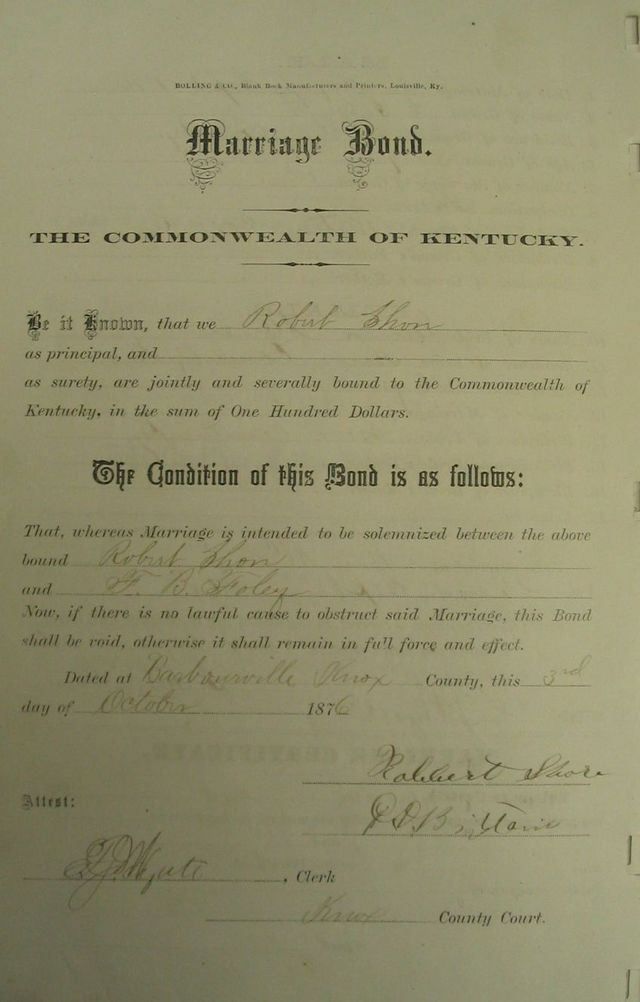 BOLLING & CO., Blank Book Manufacturers and Printers, Louisville, Ky.
Marriage Bond.
THE COMMONWEALTH OF KENTUCKY.
Be it Known, that we Robert Shon
as principal, and
as surety, are jointly and severally bound to the Commonwealth of
Kentucky, in the sum of One Hundred Dollars.
The Condition of this Bond is as follows:
That, whereas Marriage is intended to be solemnized between the above
bound Robert Shon
and F. B. Foley
Now, if there is no lawful cause to obstruct said Marriage, this Bond
shall be void, otherwise it shall remain in full force and effect.
Dated at Barbourville Knox County, this 3rd
day of October 1876
Robbert Shore
Attest:
, Clerk
Knox County Court.